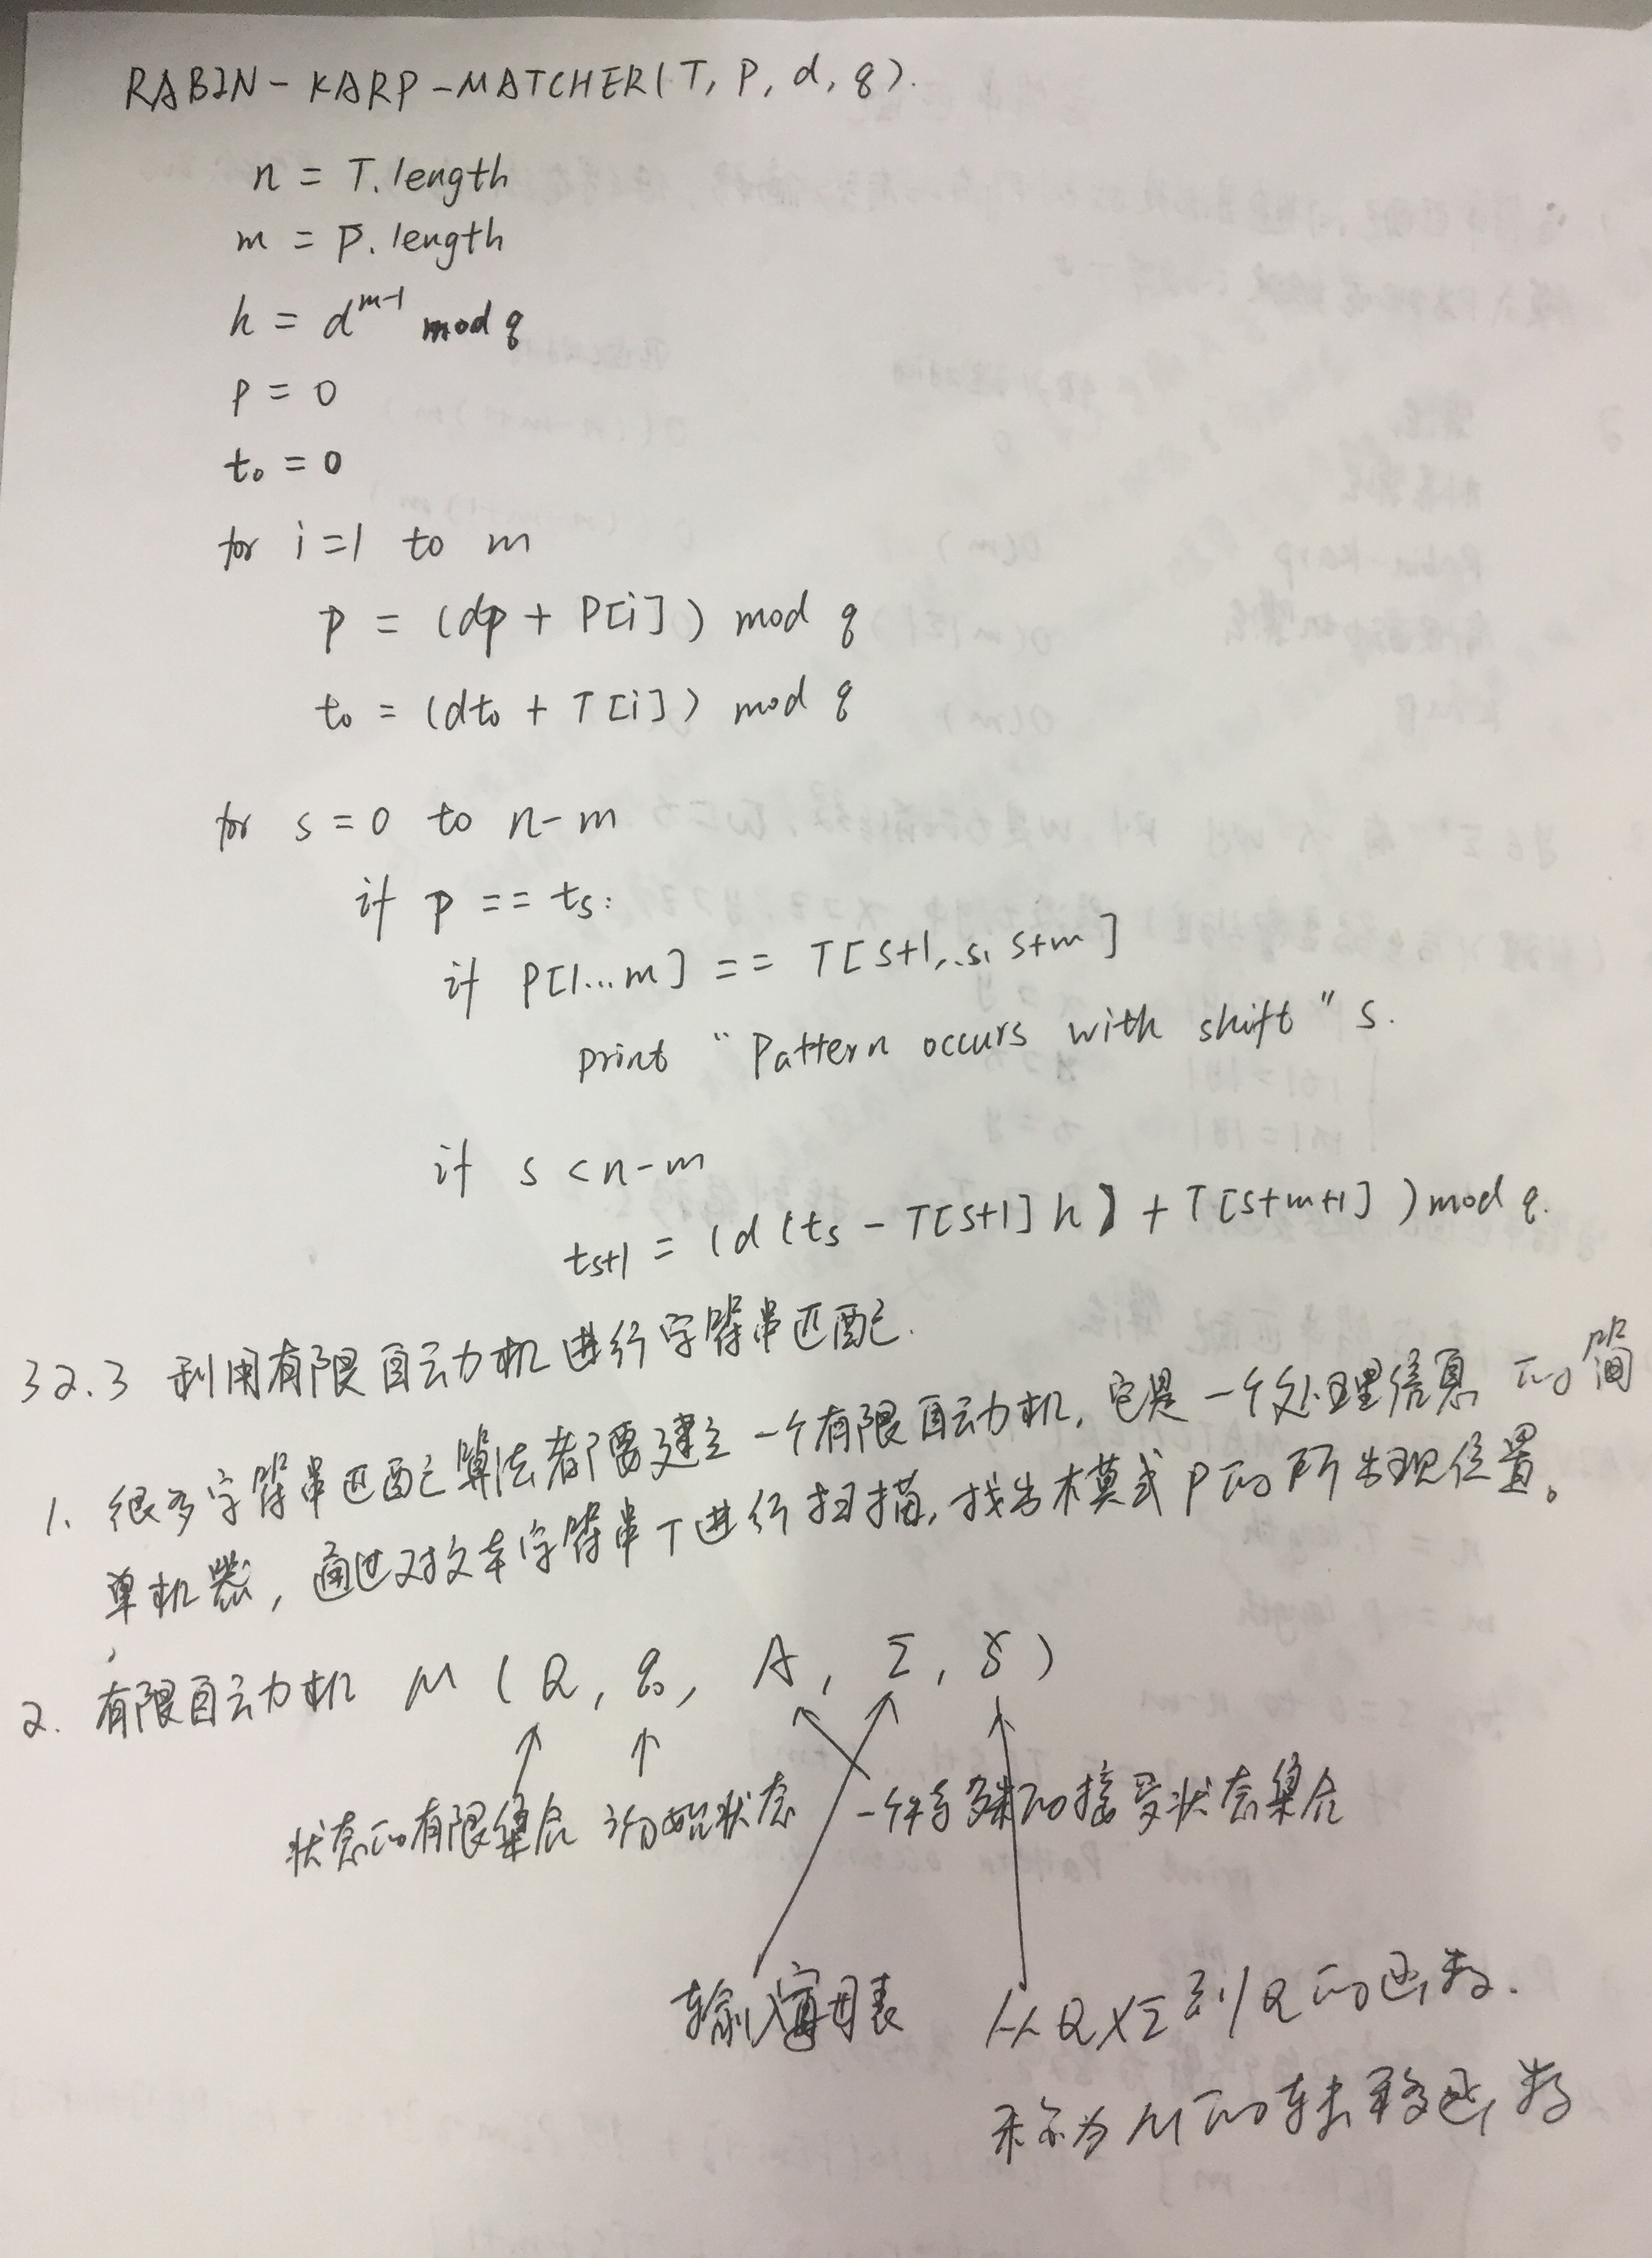 RABIN-KARP-MATCHER(T, P, d, q).
n = T.length
m = P.length
h = d^{m-1} mod q
p = 0
t₀ = 0
for i=1 to m
p = (dp + P[i]) mod q
t₀ = (dt₀ + T[i]) mod q
for s=0 to n-m
if p == ts:
if P[1...m] == T[s+1,..s, s+m]
print "Pattern occurs with shift" s.
if s < n-m
ts+1 = (d(ts - T[s+1]h) + T[s+m+1]) mod q.
32.3 利用有限自动机进行字符串匹配.
1. 很多字符串匹配算法都要建立一个有限自动机, 它是一个处理信息的简
单机器, 通过对文本字符串T进行扫描, 找出模式P的所出现位置。
2. 有限自动机 M (Q, q₀, A, Σ, δ)
状态的有限集合 初始状态 一个特殊的接受状态集合
输入字母表 从Q×Σ到Q的函数.
称为M的转移函数